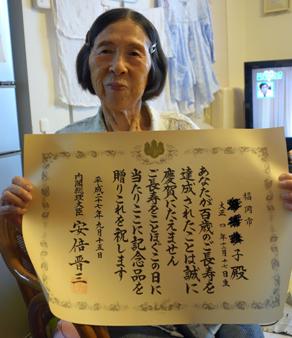 福岡市
子殿
大正四年三月十七日生
あなたが百歳のご長寿を
達成されたことは誠に
慶賀にたえません
ご長寿をことほぐこの日に
当たりここに記念品を
贈りこれを祝します
平成二十六年九月十五日
内閣総理大臣 安倍晋三